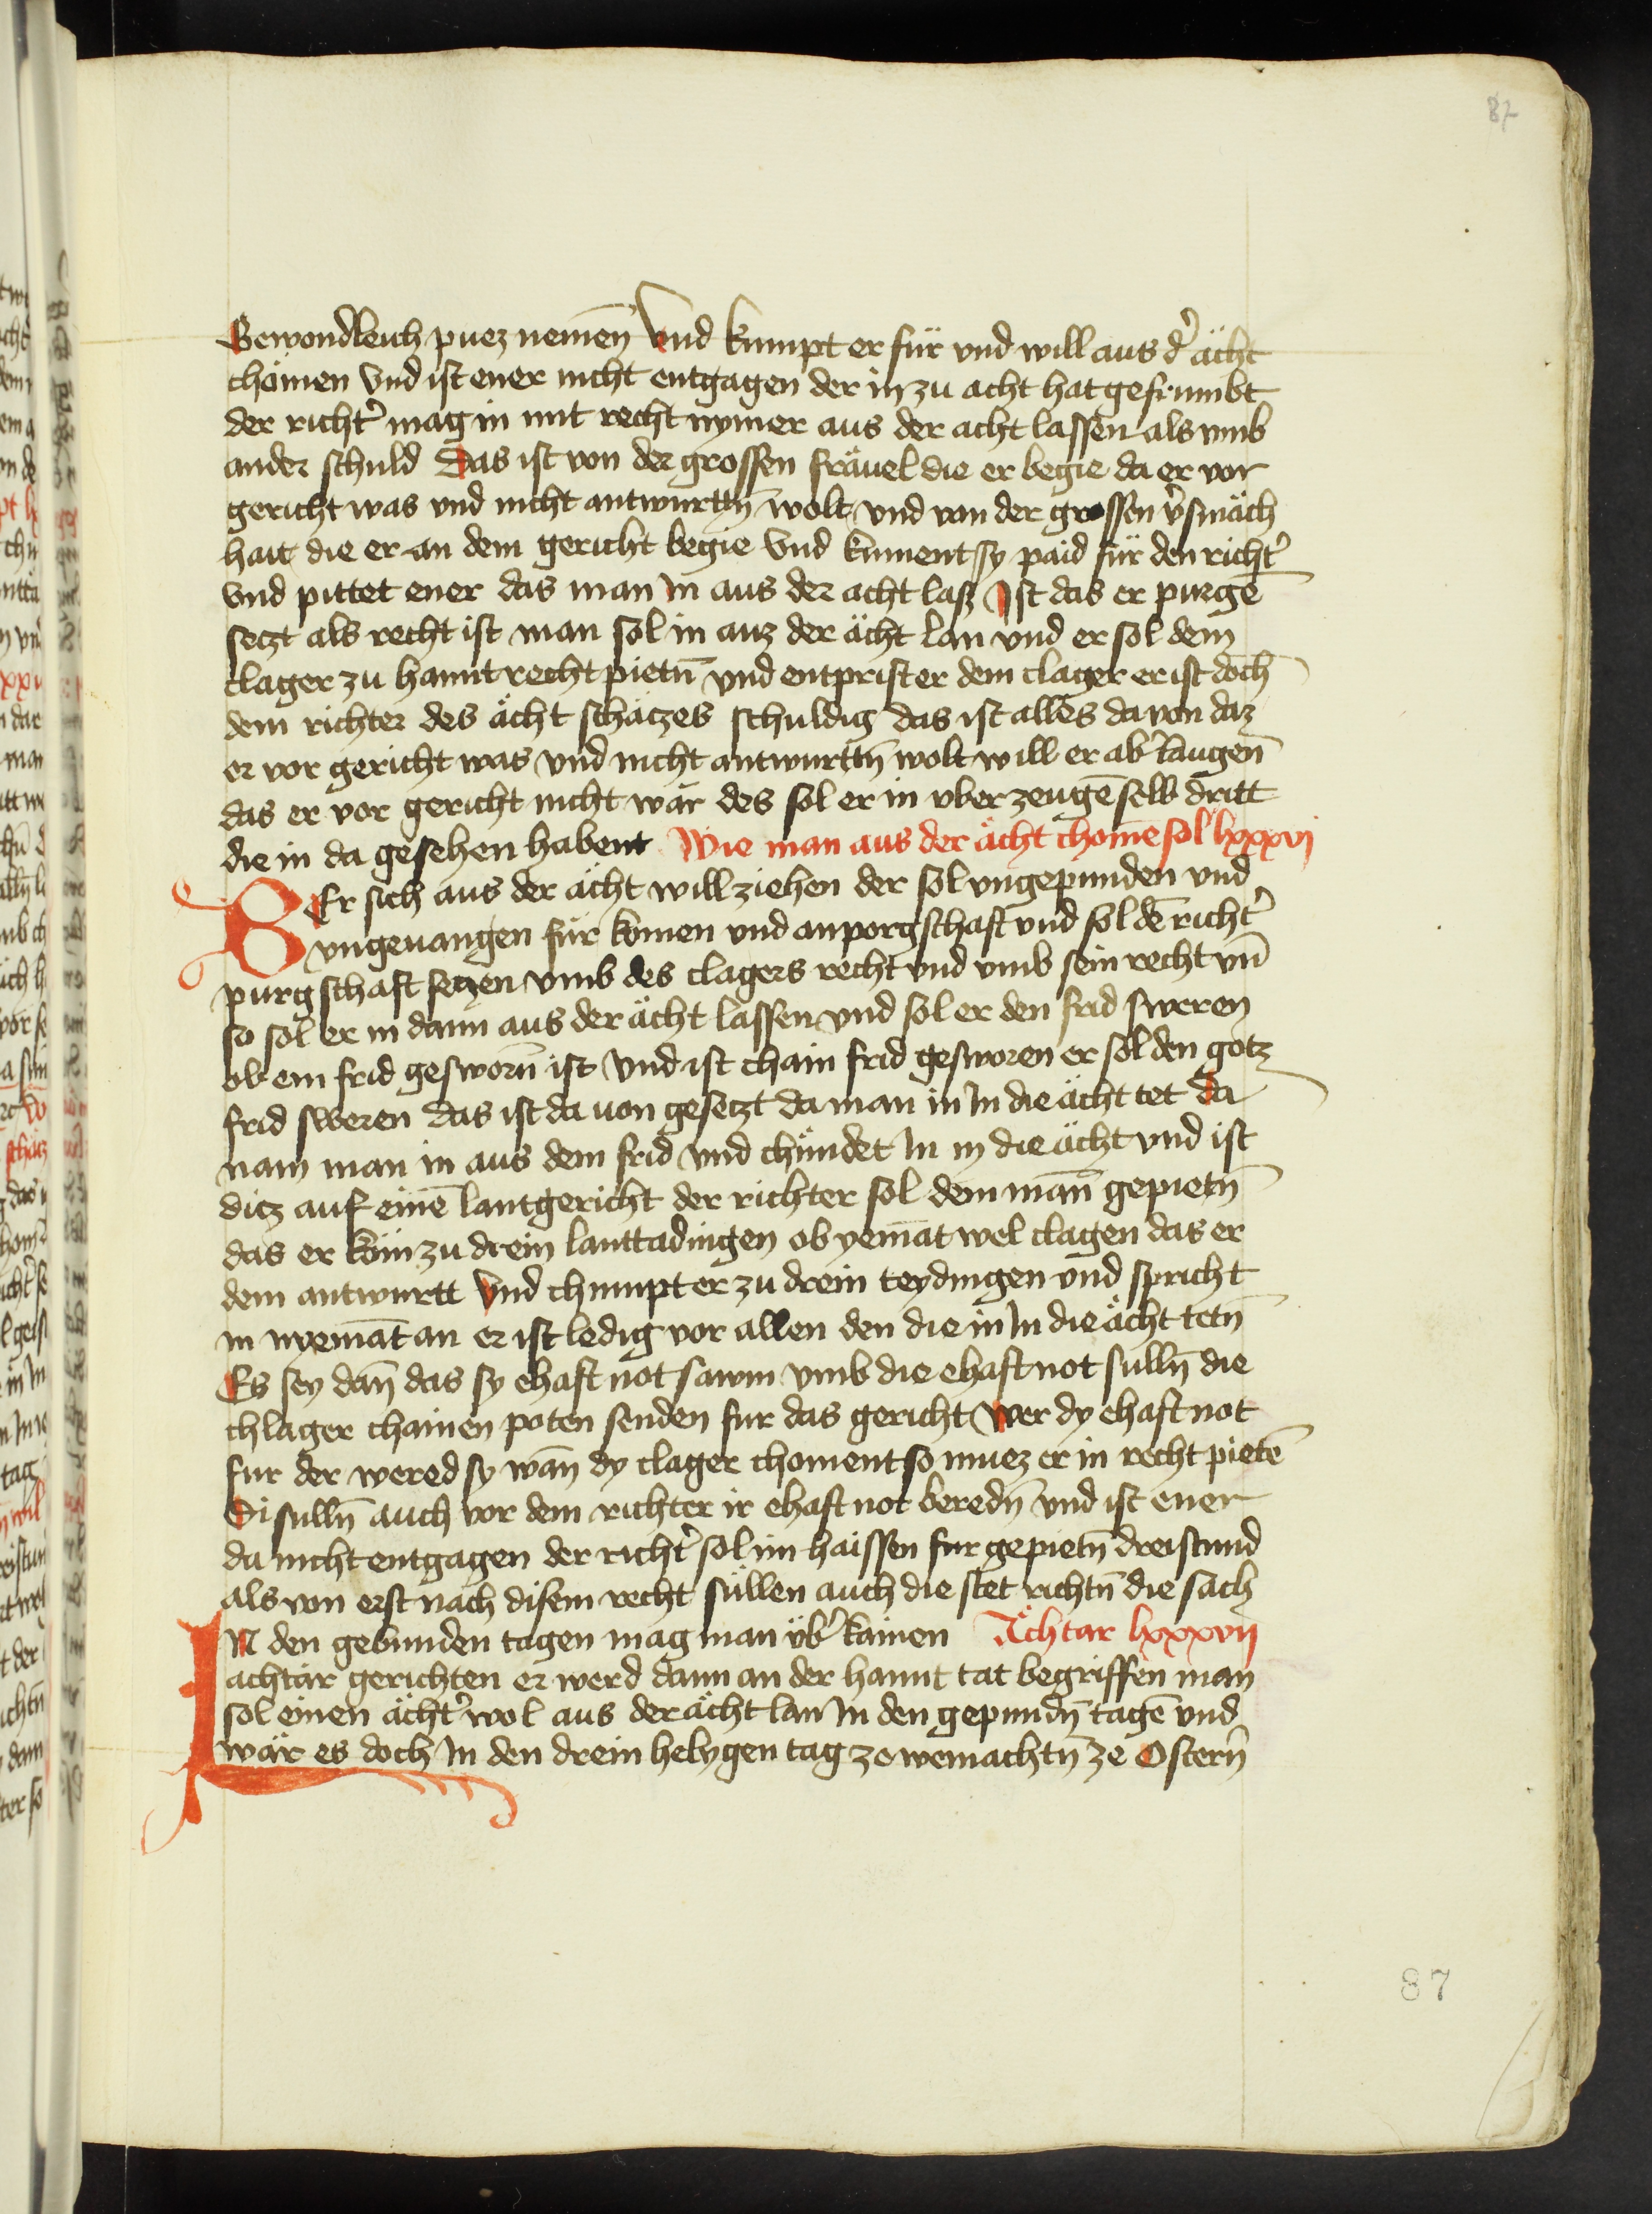 87
Gewondleich puez nemen̄ Vnd kumpt er für vnd will aus dˀ ächt
chömen Vnd ist ener nicht entgagen der in zu acht hat gefrumbt
der richtˀ mag in mit recht nymer aus der acht lassen als vmb
ander schuld Das ist von der grossen fräuel die er begie da er vor
gericht was vnd nicht antwurttn̄ wolt vnd von der grossen vˀsmäch
hait die er an dem gericht begie Vnd kument sy paid für den richtˀ
vnd pittet ener das man in aus der acht lasz Ist das er purgē
setzt als recht ist man sol in auz der ächt lan vnd er sol dem
clager zu hannt recht pietn̄ vnd entprist er dem clager er ist doch
dem richter des ächt schätzes schuldig das ist alles da von daz
er vor gericht was vnd nicht antwurttn̄ wolt will er abˀ laugen̄
das er vor gericht nicht wär des sol er in vber zeugē selb dritt
die in da gesehen habent Wie man aus der ächt chomē sol lxxxvj
WEr sich aus der ächt will ziehen der sol vngepunden vnd
vngeuangen für komen vnd an porgschaft vnd sol dē richtˀ
purgschaft setzen vmb des clagers recht vnd vmb sein recht vn̄
so sol er in dann aus der ächt lassen vnd sol er den frid sweren
ob ein frid gesworn̄ ist Vnd ist chain frid gesworen er sol den gotz
frid sweren das ist da uon gesetzt da man in In die ächt tet Da
nam man in aus dem frid vnd chündet In in die ächt vnd ist
ditz auf einē lantgericht der richter sol dem man̄ gepietn̄
das er kům zu drein lanttadingen ob yemāt wel clagen das er
dem antwurtt Vnd chumpt er zu drein teydingen vnd spricht
in nyemāt an er ist ledig vor allen den die in In die ächt tetn̄
Es sey dan̄ das sy ehaft not sawm vmb die ehaft not sulln̄ die
chlager chainen poten senden fur das gericht Wer dy ehaft not
fur der wered sy wan̄ dy clager choment so muez er in recht pietē
Si sulln̄ auch vor dem richter ir ehaft not beredn̄ vnd ist ener
da nicht entgagen der richtˀ sol im haissen fur gepietn̄ dreistund
als von erst nach disem recht süllen auch die stet richtn̄ die sach
IN den gebunden tagen mag man übˀ kainen Ächtar lxxxvij
achtär gerichten er werd dann an der hannt tat begriffen man
sol einen ächtˀ wol aus der ächt lan In den gepundn̄ tagē vnd
wär es doch In den drein helygen tag ze weinachtn̄ ze Ostern̄
87